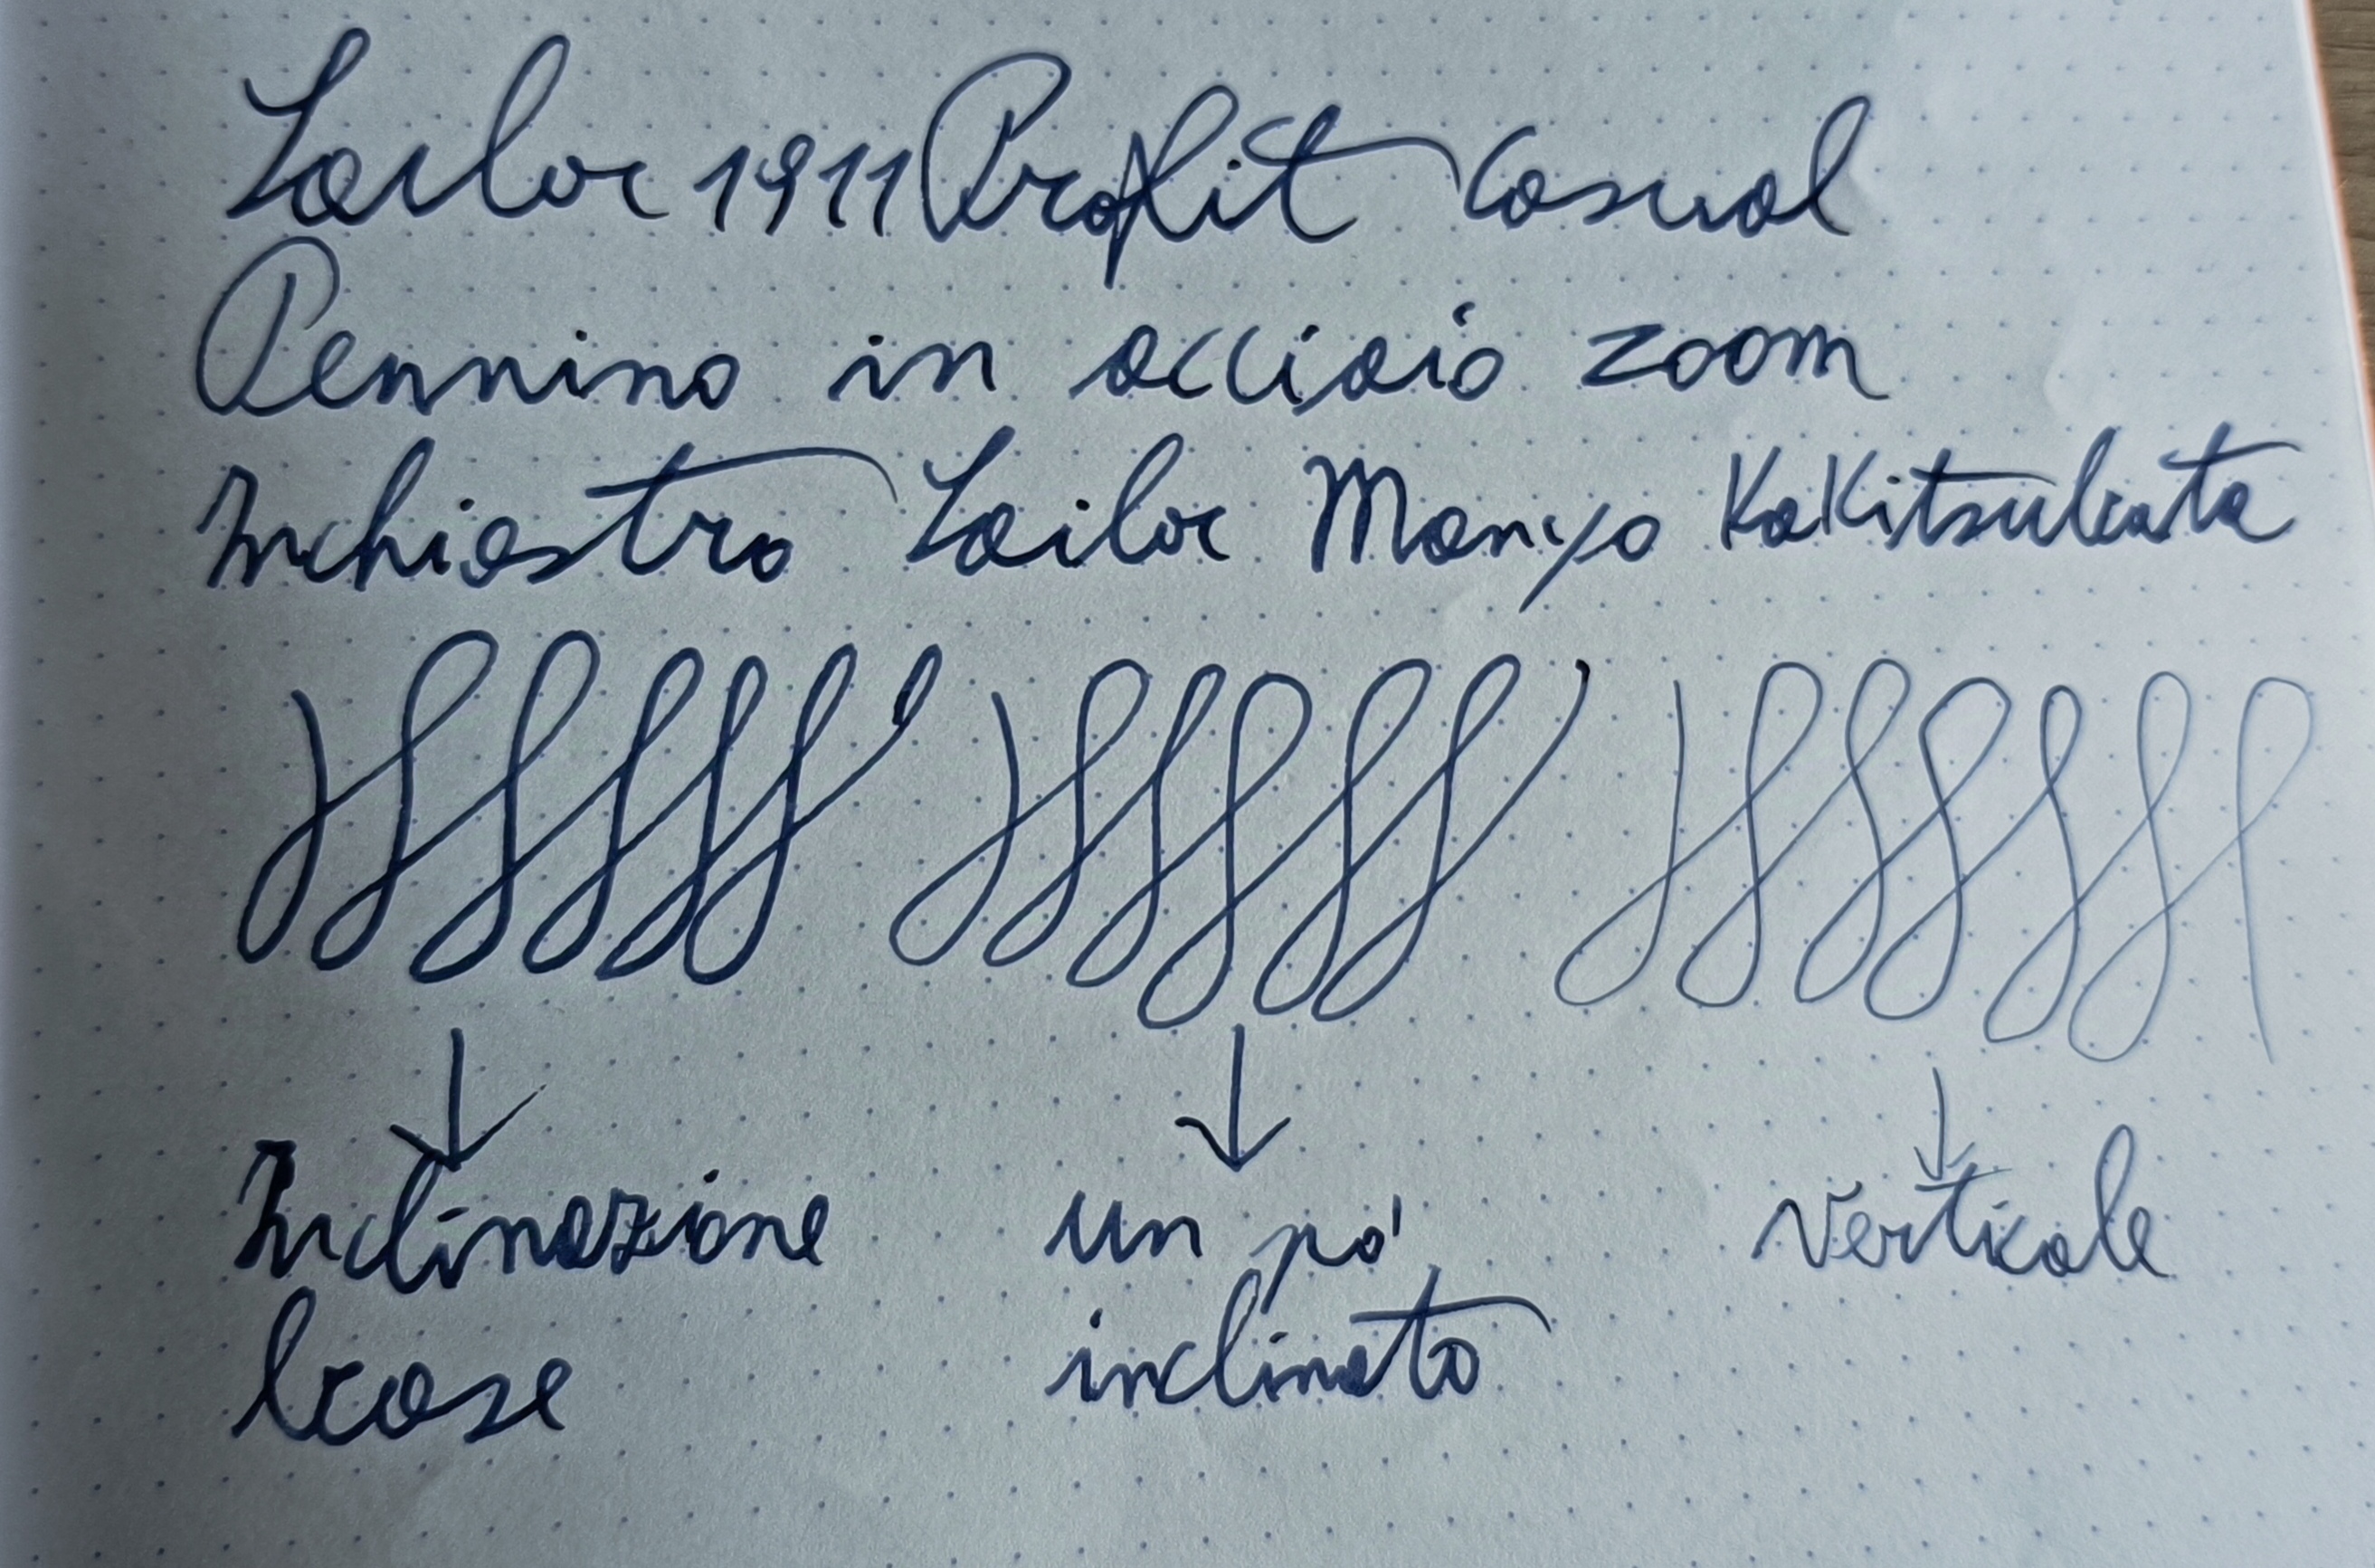 Sailor 1911 Profit Casual
Pennino in acciaio zoom
Inchiostro Sailor Manyo Kakitsubata
Inclinazione
base
un pò
inclinato
Verticale